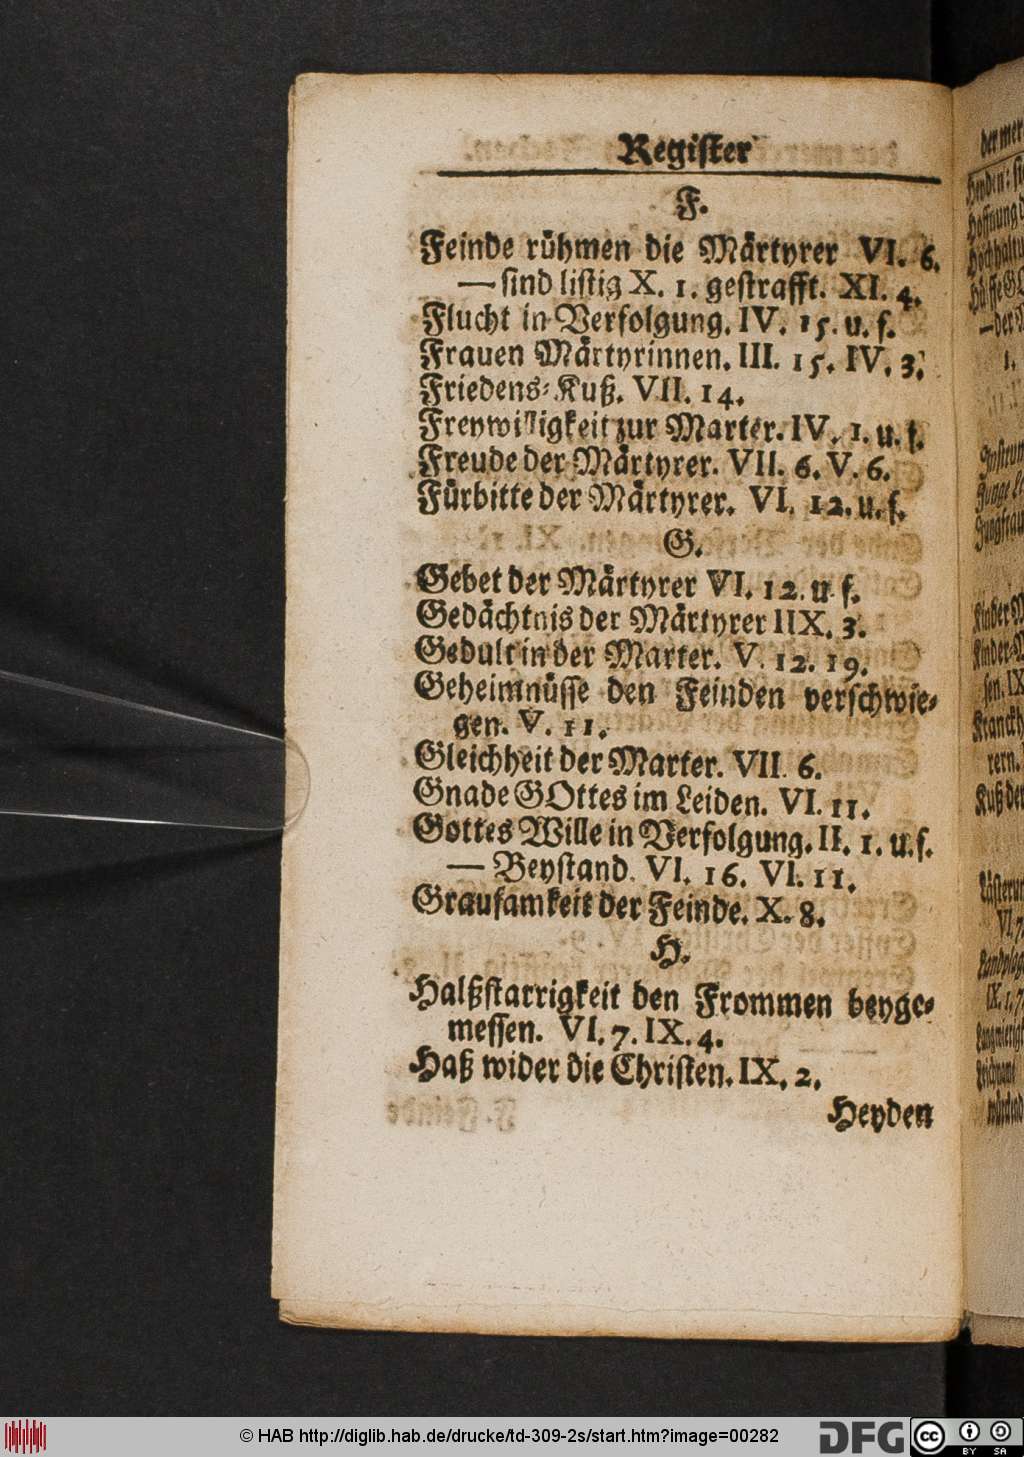 Register
F.
Feinde rühmen die Märtyrer VI. 6.
— sind listig X. 1. gestrafft. XI. 4.
Flucht in Verfolgung. IV. 15. u. f.
Frauen Märtyrinnen. III. 15. IV. 3.
Friedens-Kuß. VII. 14.
Freywilligkeit zur Marter. IV. 1. u. f.
Freude der Märtyrer. VII. 6. V. 6.
Fürbitte der Märtyrer. VI. 12. u. f.
G.
Gebet der Märtyrer VI. 12. u. f.
Gedächtnis der Märtyrer IIX. 3.
Gedult in der Marter. V. 12. 19.
Geheimnüsse den Feinden verschwie-
gen. V. 11.
Gleichheit der Marter. VII. 6.
Gnade GOttes im Leiden. VI. 11.
Gottes Wille in Verfolgung. II. 1. u. f.
— Beystand. VI. 16. VI. 11.
Grausamkeit der Feinde. X. 8.
H.
Halßstarrigkeit den Frommen beyge-
messen. VI. 7. IX. 4.
Haß wider die Christen. IX. 2.
Heyden
© HAB http://diglib.hab.de/drucke/td-309-2s/start.htm?image=00282
DFG
cc
BY SA